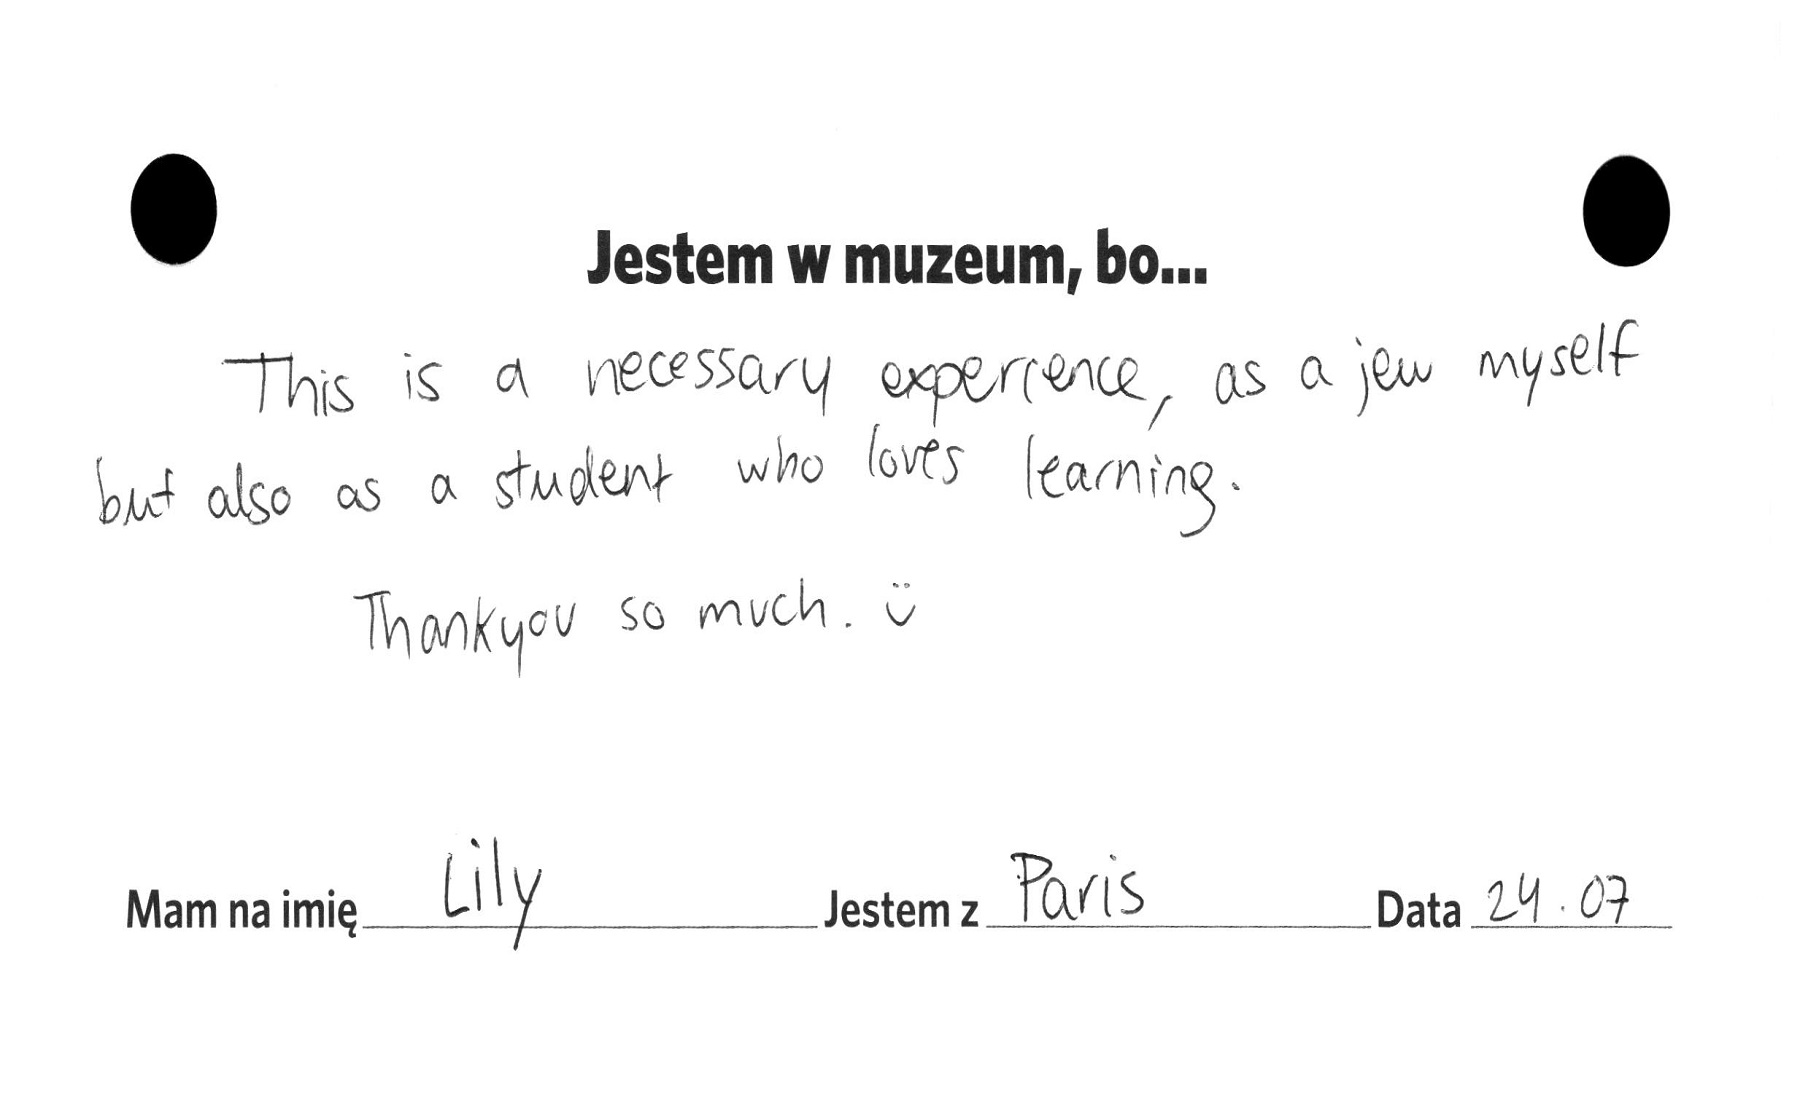 Jestem w muzeum, bo...
This is a necessary experience, as a jew myself
but also as a student who loves learning.
Thankyou so much. :)
Mam na imię Lily Jestem z Paris Data 24.07